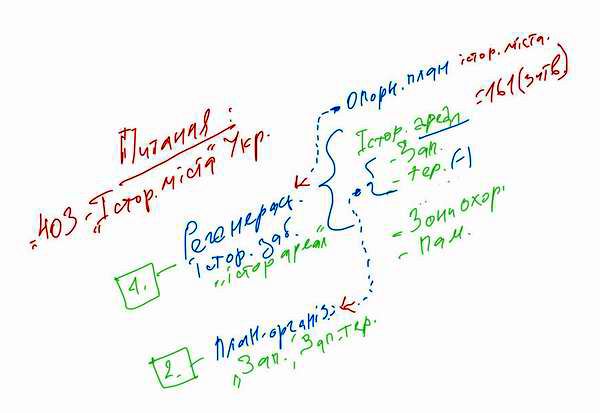 Питаная:
"403 - "Істор.міста" Укр.
Опорн. план істор. міста.
=161 (затв)
Істор. ареал
- Зап.
- тер. (-)
- Зони охор.
- Пам.
1. - Регенерац.
істор. заб.
"істор ареал"
2. - План.-організ.:
"Зап.", Зап-тер.